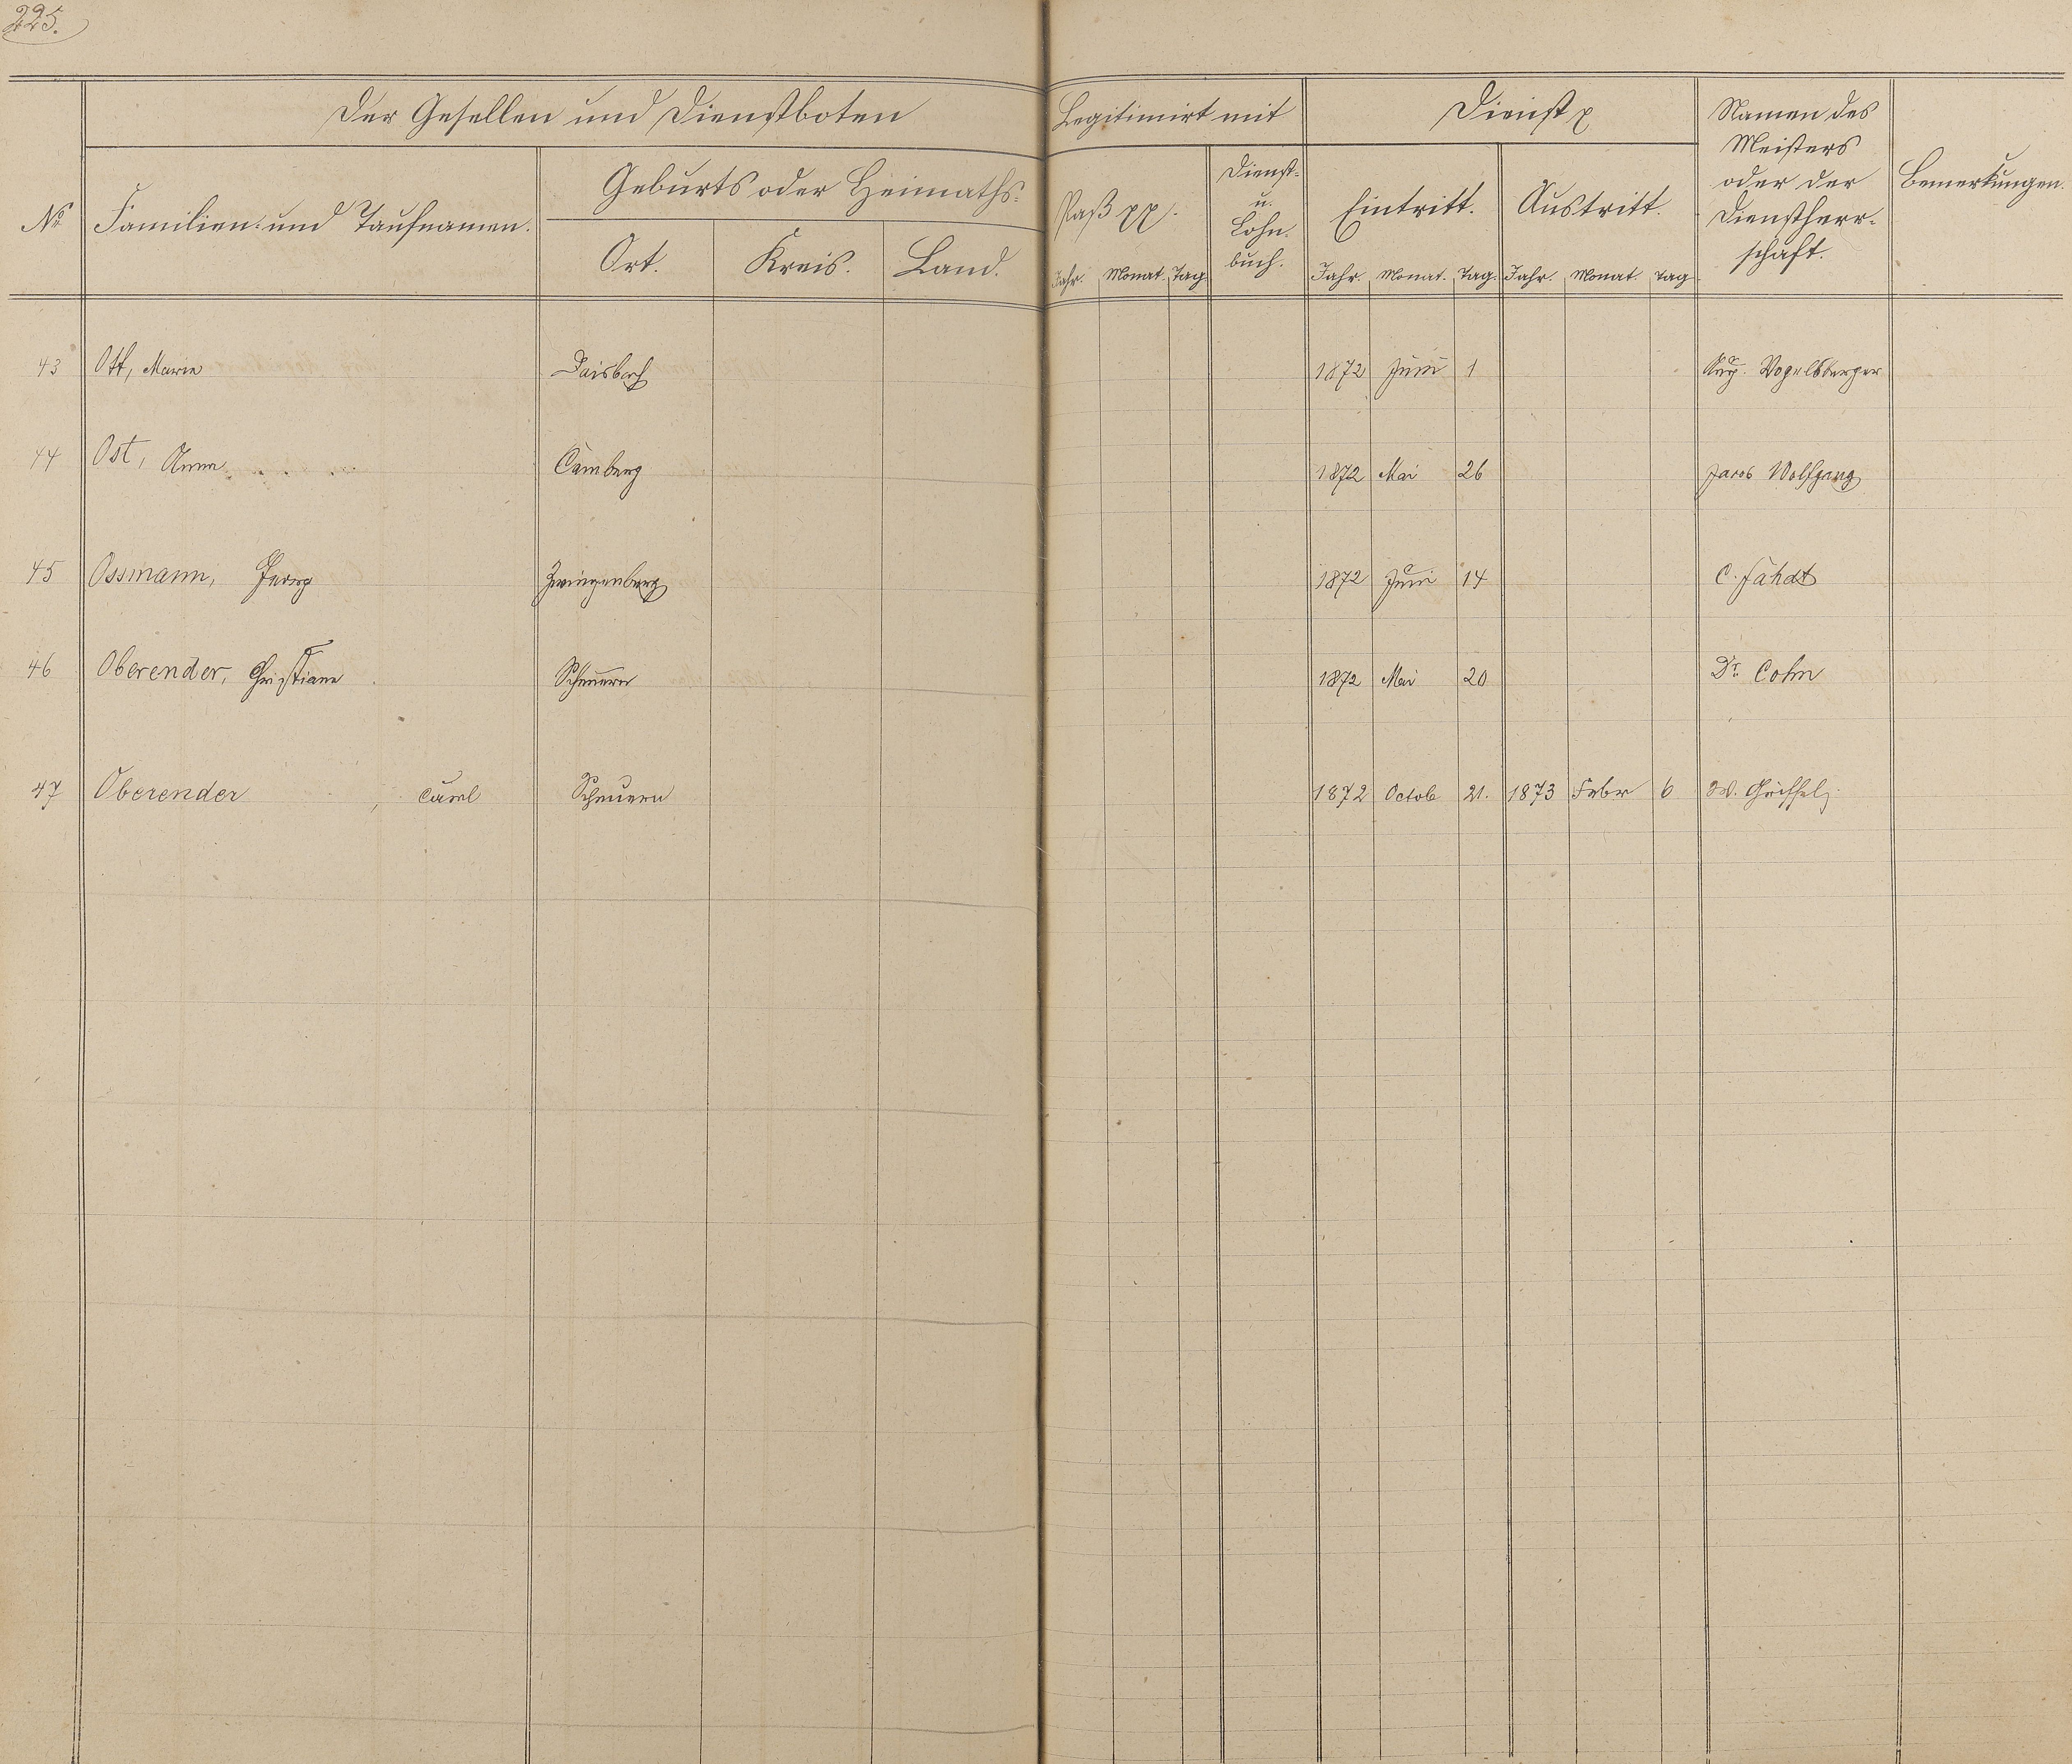 225.
Der Gesellen und Dienstboten
Legitimirt mit
Dienst
Namen des
Meisters
oder der
Dienstherr-
schaft.
Bemerkungen.
No
Familien- und Taufnamen.
Geburts oder Heimaths-
Ort. Kreis. Land.
Paß pp.
Jahr. Monat. Tag.
Dienst-
u.
Lohn-
buch.
Eintritt.
Jahr. Monat. Tag.
Austritt.
Jahr. Monat. Tag
43 Ott, Marie Daisbach 1872 Juni 1 Aug. Vogelsberger
44 Ost, Anna Camberg 1872 Mai 26 Jacob Wolfgang
45 Ossmann, Georg Zwingenberg 1872 Juni 14 C. Jahdt
46 Oberender, Christiane Scheuern 1872 Mai 20 Dr. Cohn
47 Oberender, Carl Scheuern 1872 Octob 21. 1873 Febr 6 W.